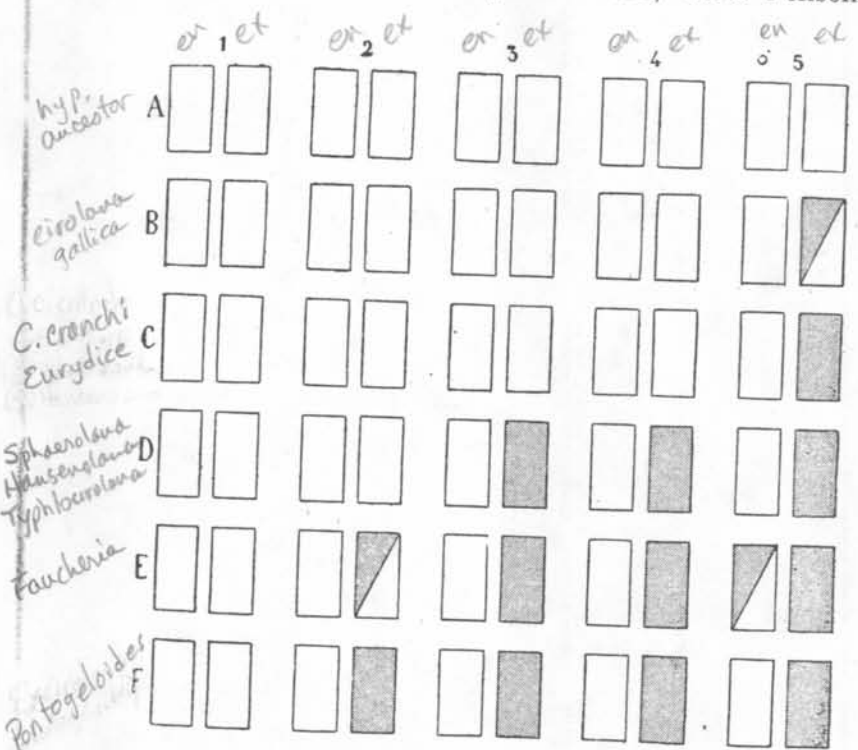 en 1 ex en 2 ex en 3 ex en 4 ex en 5 ex
hyp. ancestor A
cirolana gallica B
C. cranchi
Eurydice C
Sphaerolana
Hansenolana
Typhlocirolana D
Faucheria E
Pontogeloides F